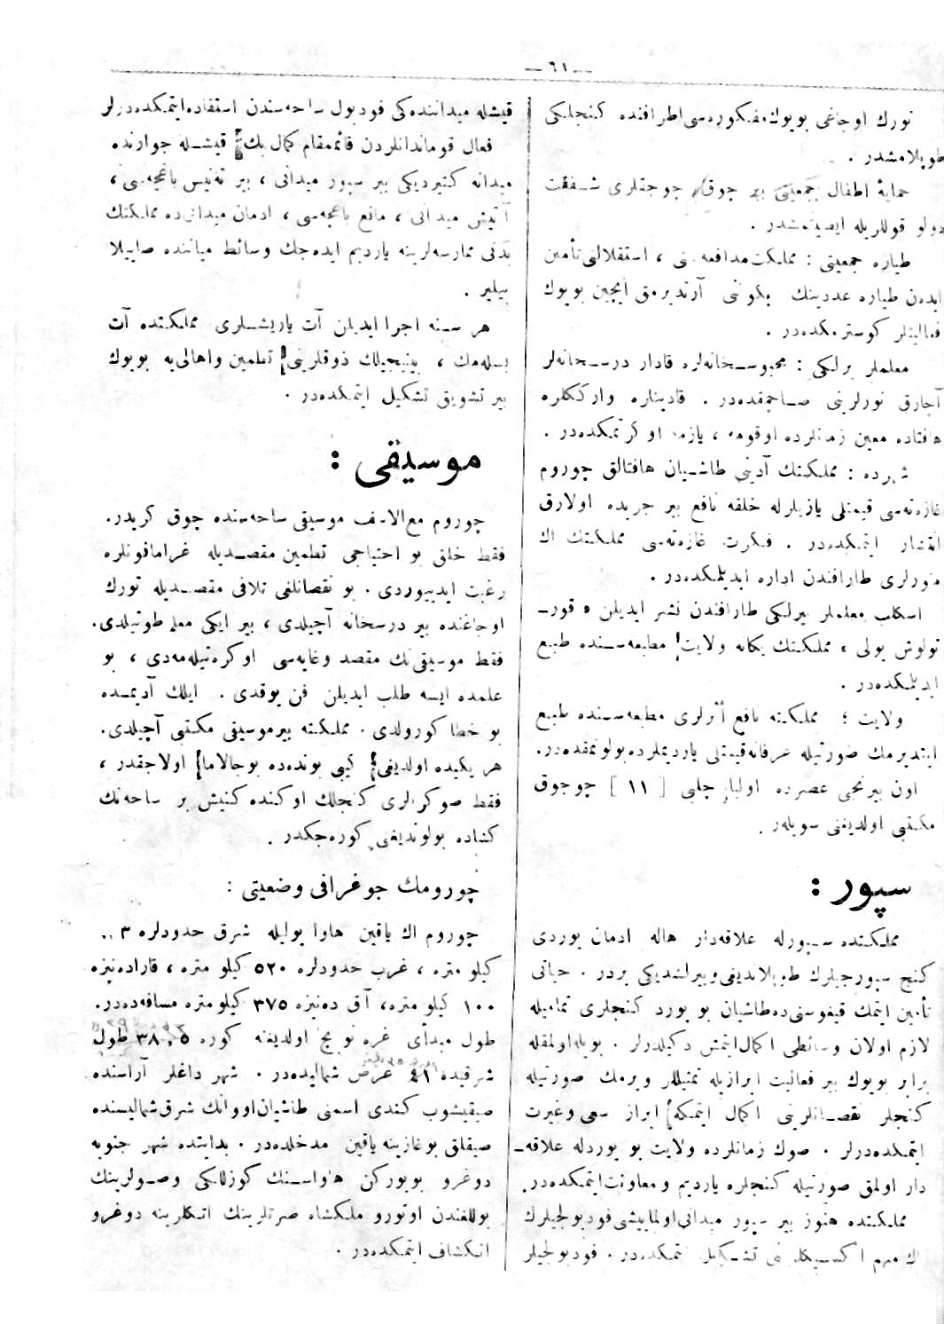 — ٦١ —
تورك اوجاغى بويوك مفكوره‌سى اطرافنده كنجلكى
طوپلامشدر .
حمايۀ اطفال جمعيتى بير چوق چوجقلرى شفقت
دولو قوللريله ايصيتمشدر .
طياره جمعيتى : مملكت مدافعه‌سنى ، استقلالنى تأمين
ايده‌ن طياره عددينك يكوننى آرتديرمق ايچين بويوك
فعاليتلر كوسترمكده‌در .
معلملر برلكى : محبوسخانه‌لره قادار درسخانه‌لر
آچارق نورلرينى صاچمقده‌در . قادينلره واركلره
هافتاده معين زمانلرده اوقومه ، يازمه اوكرتمكده‌در .
شهرده : مملكتك آدينى طاشييان هافتالق چوروم
غازه‌ته‌سى قيمتلى يازيلرله خلقه نافع بير جريده اولارق
انتشار ايتمكده‌در . فكرت غازه‌ته‌سى مملكتك اك
منورلرى طارافندن اداره ايديلمكده‌در .
اسكلب معلملر بيرلكى طارافندن نشر ايديلن « قور-
تولوش يولى ، مملكتك يكانه ولايت مطبعه‌سنده طبع
ايديلمكده‌در .
ولايت ؛ مملكته نافع أثرلرى مطبعه‌سنده طبع
ايتديرمك صورتيله عرفانه قيمتلى يارديملرده بولونمقده‌در.
اون بيرنجى عصرده اوليا چلبى [ ١١ ] چوجوق
مكتبى اولديغنى سويلر .
سپور :
مملكتده سپورله علاقه‌دار هاله ادمان يوردى
كنج سپورجيلرك طوپلانديغى ويرلشديكى يردر . حياتى
تأمين ايتمك قيغوسنى ده طاشيان بو يورد كنجلرى تماميله
لازم اولان وسائطى اكمال ايتمش دكيلدرلر . بويله اولمقله
برابر بويوك بير فعاليت ابرازيله تمثيللر ويرمك صورتيله
كنجلر نقصانلرينى اكمال ايتمكه ابراز سعى وغيرت
ايتمكده‌درلر . صوك زمانلرده ولايت بو يوردله علاقه-
دار اولمق صورتيله كنجلره يارديم و معاونت ايتمكده‌در.
مملكتده هنوز بير سپور ميدانى اولمايشى فوديولجيلرك
اك مهم اكسيكلكنى تشكيل ايتمكده‌در . فوديولجيلر
قيشله ميدانندەكى فوديول ساحه‌سندن استفاده ايتمكده‌درلر
فعال قوماندانلردن قائمقام كمال بك قيشله جوارنده
ميدانه كتيرديكى بير سپور ميدانى ، بير ته‌نيس باغچه‌سى ،
آتيش ميدانى ، مانع باغچه‌سى ، ادمان ميدانى ده مملكتك
بدنى ممارسه‌لرينه يارديم ايده‌جك وسائط مياننده صاييلا
بيلير .
هر سنه اجرا ايديلن آت ياريشلرى مملكتده آت
بسله‌مك ، بينيجيلك ذوقلرينى تطمين واهالى‌يه بويوك
بير تشويق تشكيل ايتمكده‌در .
موسيقى :
چوروم مع‌الاسف موسيقى ساحه‌سنده چوق كريدر.
فقط خلق بو احتياجى تطمين مقصديله غرامافونلره
رغبت ايدييوردى . بو نقصانلغى تلافى مقصديله تورك
اوجاغنده بير درسخانه آچيلدى ، بير ايكى معلم طوتيلدى.
فقط موسيقى‌نك مقصد وغايه‌سى اوكره‌تيله‌مه‌دى ، بو
علمده ايسه طلب ايديلن فن يوقدى . ايلك آديمده
بو خطا كورولدى . مملكته بير موسيقى مكتبى آچيلدى.
هر يكيده اولديغى كيبى بونده‌ده بوجالاما اولاجقدر ،
فقط صوكرالرى كنجلك اوكنده كنيش بر ساحه‌نك
كشاده بولونديغنى كوره‌جكدر .
چورومك جوغرافى وضعيتى :
چوروم اك ياقين هاوا يوليله شرق حدودلره ٣٠٠
كيلو متره ، غرب حدودلره ٥٢٠ كيلو متره ، قاراده‌نيزه
١٠٠ كيلو متره ، آق ده‌نيزه ٣٧٥ كيلو متره مسافه‌ده‌در.
طول مبدأى غره‌نويچ اولديغنه كوره ٣٨،٥ طول
شرقيده ٤١ عرض شماليده‌در . شهر داغلر آراسنده
صيقيشوب كندى اسمنى طاشيان اووانك شرق شماليسنده
صيقلق بوغازينه ياقين مدخلده‌در . بدايتده شهر جنوبه
دوغرو بويوركن هاواسنك كوزللكى وصولرينك
بوللغندن اوتورو ملكشاه صرتلرينك اتكلرينه دوغرو
انكشاف ايتمكده‌در .